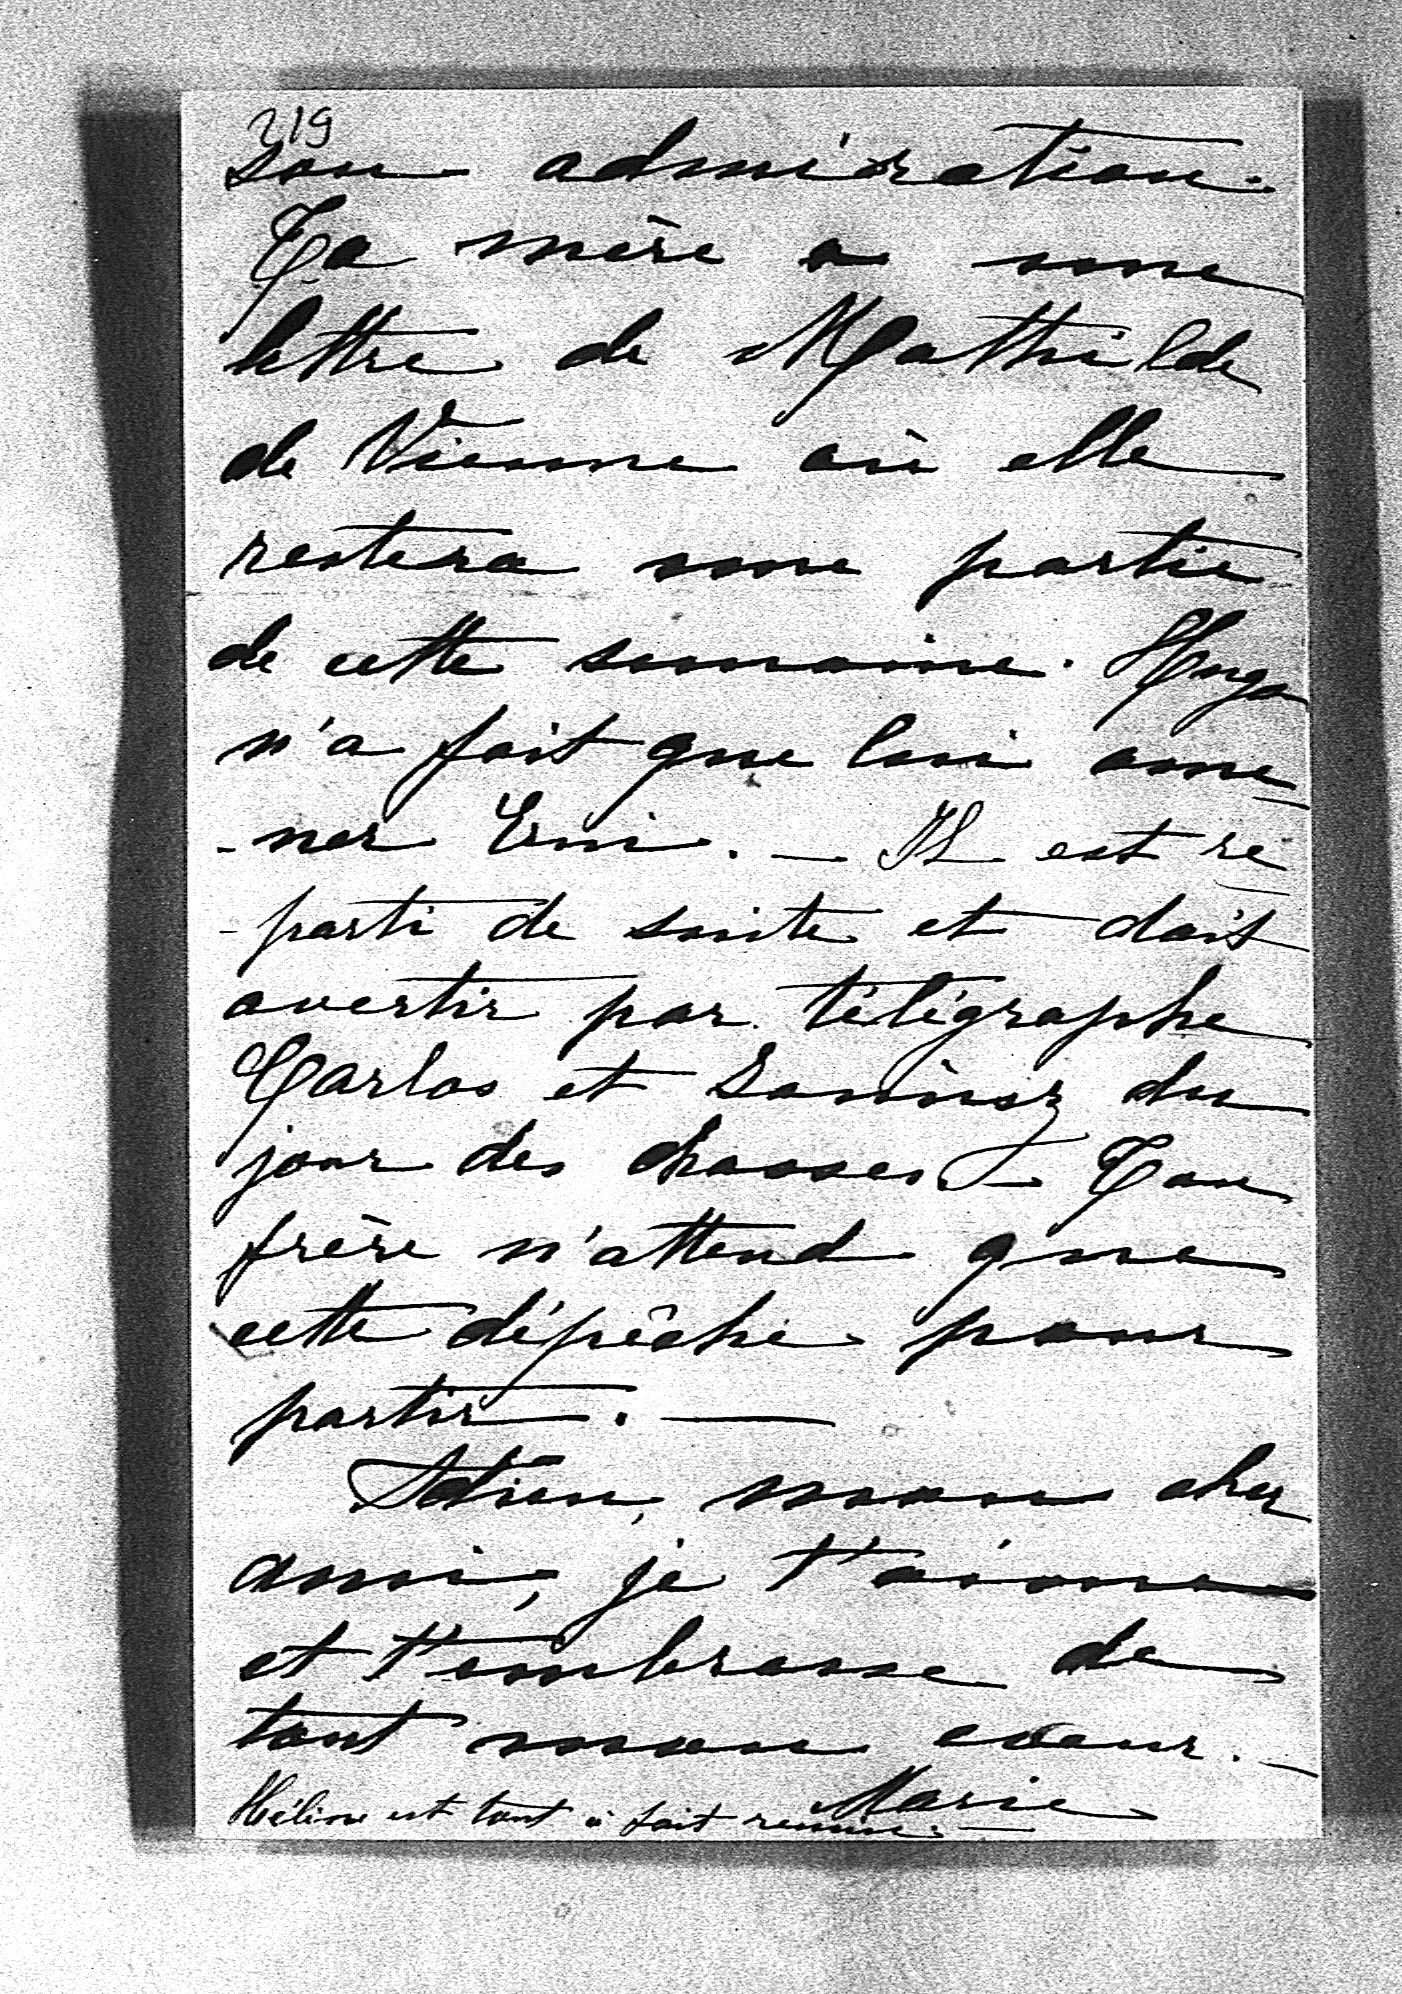 219
son admiration.
Ta mère a une
lettre de Mathilde
de Vienne où elle
restera une partie
de cette semaine. Hugo
n'a fait que lui ame
-ner Erni. — Il est re
-parti de suite et doit
avertir par télégraphe
Carlos et du
jour des chasses. — Ton
frère n'attend que
cette dépêche pour
partir. —
Adieu, mon cher
ami, je t'aime
et t'embrasse de
tout mon coeur. —
Marie
Hélène est tout à fait remise. —